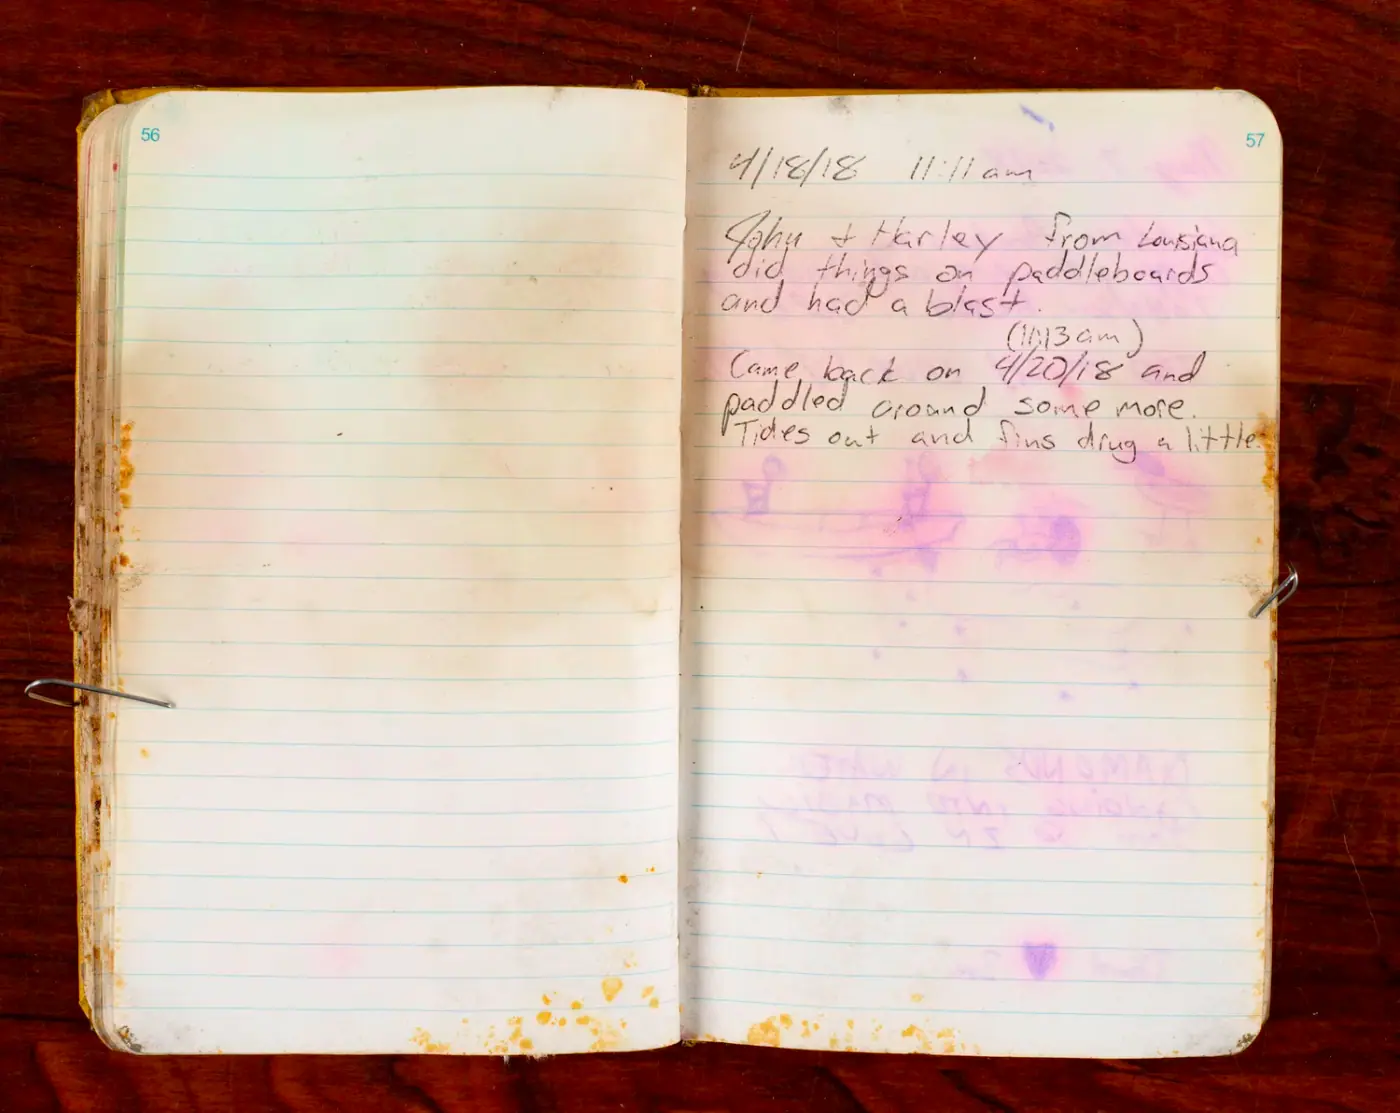 56
57
4/18/18 11:11 am
John + Harley from Lousiana
did things on paddleboards
and had a blast.
(11:13 am)
Came back on 4/20/18 and
paddled around some more.
Tides out and fins drug a little.
IN WATER
INTO